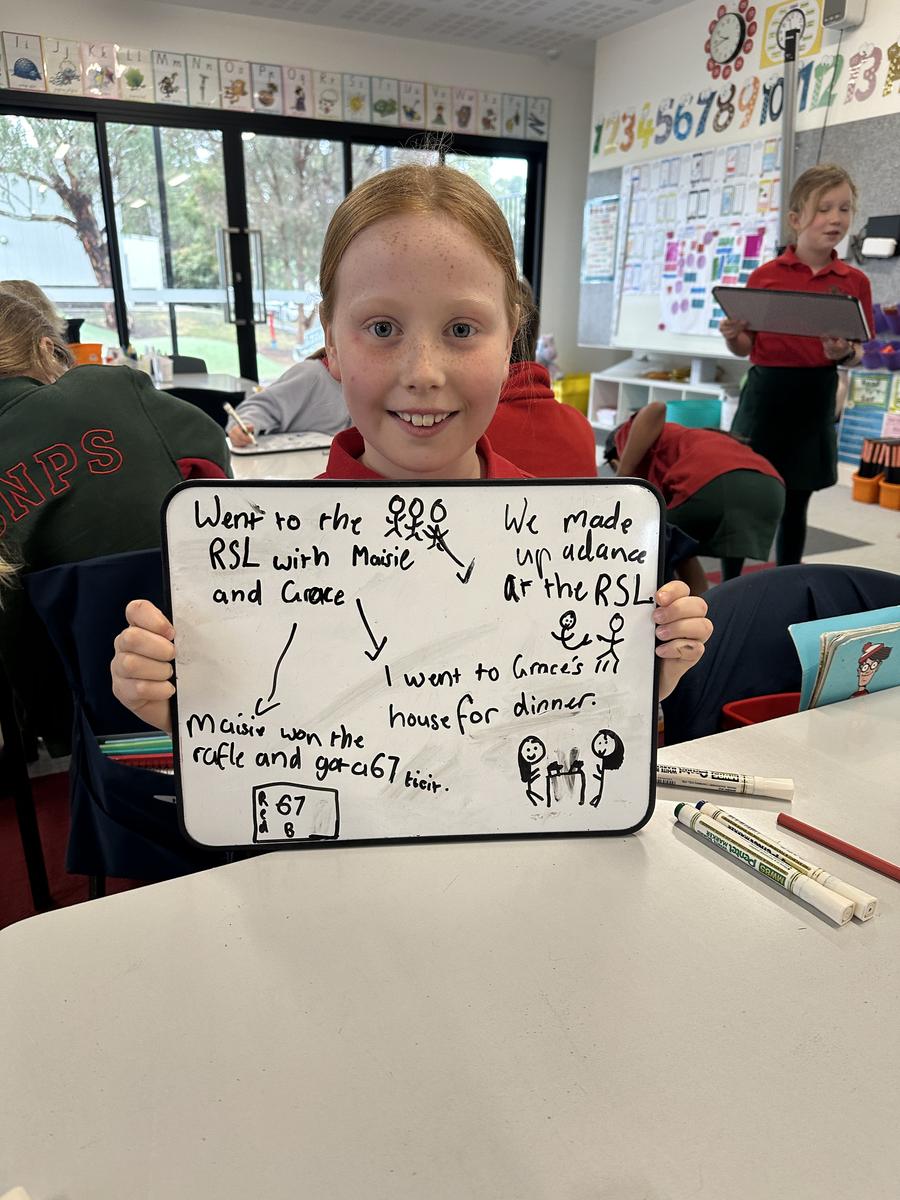 Ii
Jj
Kk
Ll
Mm
Nn
Oo
Pp
Qq
Rr
Ss
1 2 3 4 5 6 7 8 9 10 11 12 13
NPS
Went to the
RSL with Maisie
and Grace
We made
up a dance
at the RSL.
I went to Grace's
house for dinner.
Maisie won the
rafle and got a 67
ticit.
Red
67
B
MW85 Pentel
MW85 Pentel MARKER